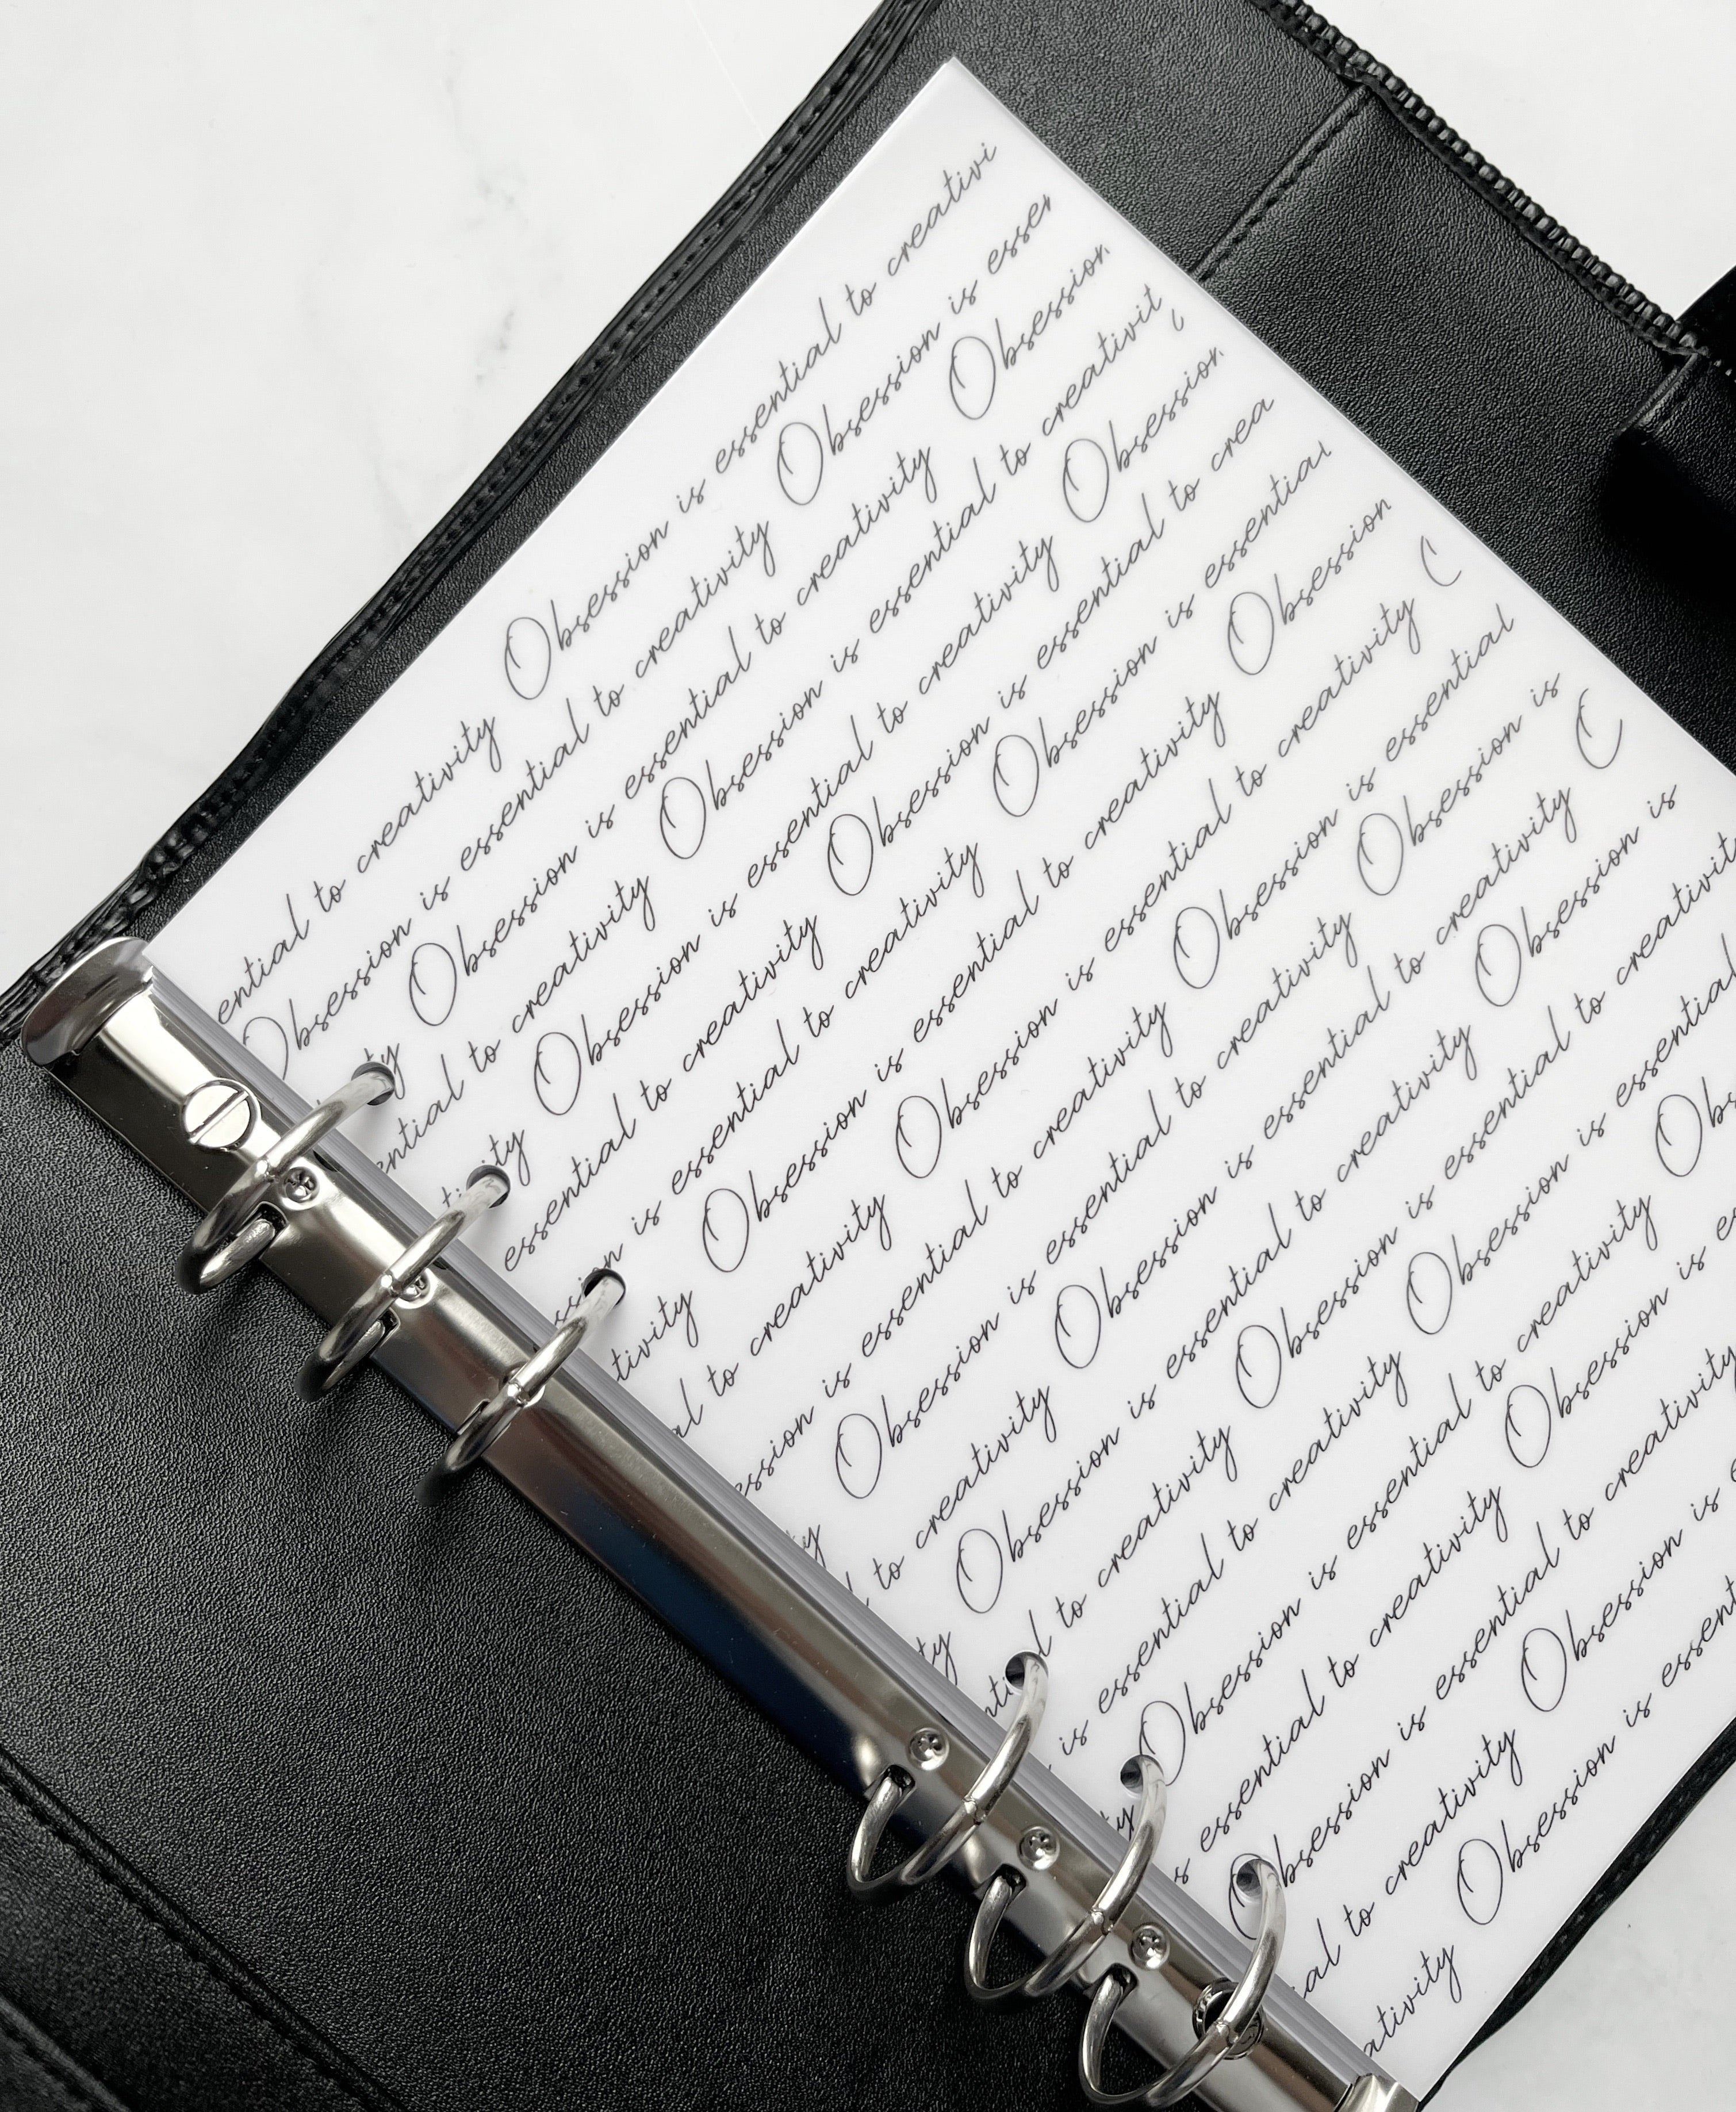 ential to creativity Obsession is essential to creativi
Obsession is essential to creativity Obsession is esse
ty Obsession is essential to creativity Obsession
ential to creativity Obsession is essential to creativit
ity Obsession is essential to creativity Obsession
essential to creativity Obsession is essential to crea
ession is essential to creativity Obsession is essential
tivity Obsession is essential to creativity Obsession
al to creativity Obsession is essential to creativity
ession is essential to creativity Obsession is essential
ty Obsession is essential to creativity Obsession is
to creativity Obsession is essential to creativity
ty Obsession is essential to creativity Obsession is
ential to creativity Obsession is essential to creativit
is essential to creativity Obsession is essential
ty Obsession is essential to creativity Obs
s essential to creativity Obsession is e
Obsession is essential to creativity
al to creativity Obsession is
ativity Obsession is essent